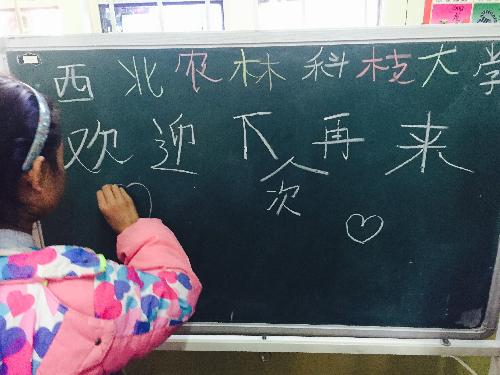 西北农林科枝大学
欢迎下再来
次